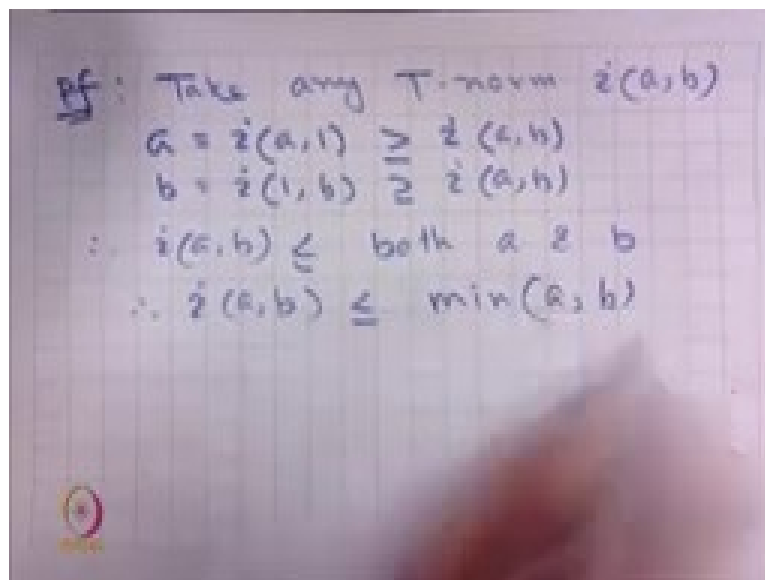 Pf: Take any T-norm i(a,b)
a = i(a,1) ≥ i(a,b)
b = i(1,b) ≥ i(a,b)
∴ i(a,b) ≤ both a & b
∴ i(a,b) ≤ min(a,b)